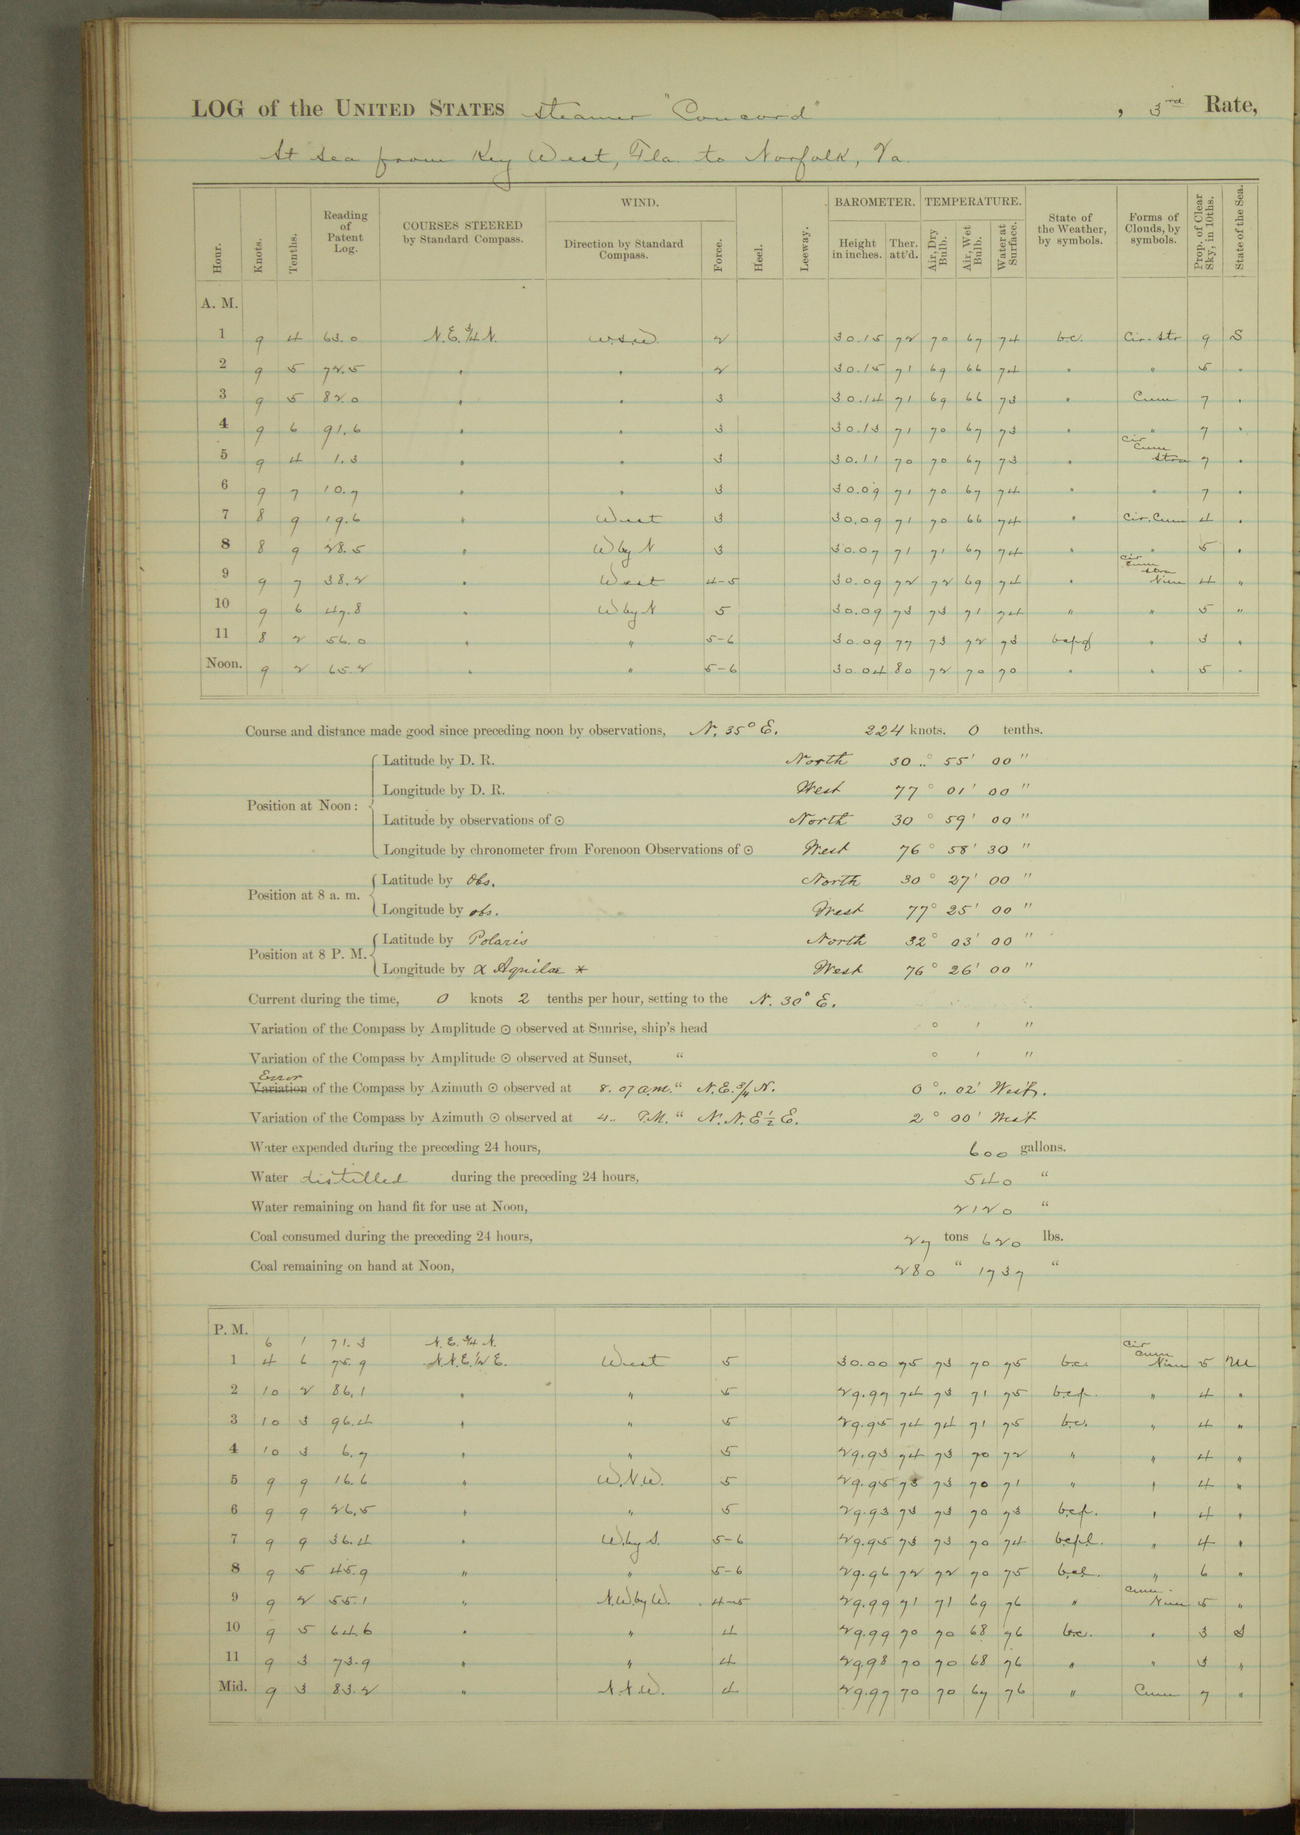 LOG of the UNITED STATES Steamer "Concord", 3rd Rate,
At Sea from Key West, Fla. to Norfolk, Va.
Hour. Knots. Tenths. Reading of Patent Log. COURSES STEERED by Standard Compass. WIND. Direction by Standard Compass. Force. Heel. Leeway. BAROMETER. Height in inches. Ther. att'd. TEMPERATURE. Air, Dry Bulb. Air, Wet Bulb. Water at Surface. State of the Weather, by symbols. Forms of Clouds, by symbols. Prop. of Clear Sky, in 10ths. State of the Sea.
A. M.
1 9 4 63.0 N.E. 3/4 N. W.S.W. 2 30.15 72 70 67 74 b.c. Cir. Str 9 S
2 9 5 72.5 " " 2 30.15 71 69 66 74 " " 5 "
3 9 5 82.0 " " 3 30.14 71 69 66 73 " Cum 7 "
4 9 6 91.6 " " 3 30.13 71 70 67 73 " " 7 "
5 9 4 1.3 " " 3 30.11 70 70 67 73 " Cir Cum Stra 7 "
6 9 7 10.7 " " 3 30.09 71 70 67 74 " " 7 "
7 8 9 19.6 " West 3 30.09 71 70 66 74 " Cir. Cum 4 "
8 8 9 28.5 " W by N 3 30.07 71 71 67 74 " " 5 "
9 9 7 38.2 " West 4-5 30.09 72 72 69 74 " Cir Cum Stra Nim 4 "
10 9 6 47.8 " W by N 5 30.09 73 73 71 74 " " 5 "
11 8 2 56.0 " " 5-6 30.09 77 73 72 73 bcpq " 3 "
Noon. 9 2 65.2 " " 5-6 30.04 80 72 70 70 " " 5 "
Course and distance made good since preceding noon by observations, N. 35° E. 224 knots. 0 tenths.
Position at Noon: Latitude by D. R. North 30° 55' 00"
Longitude by D. R. West 77° 01' 00"
Latitude by observations of ⊙ North 30° 59' 00"
Longitude by chronometer from Forenoon Observations of ⊙ West 76° 58' 30"
Position at 8 a. m. Latitude by Obs. North 30° 27' 00"
Longitude by obs. West 77° 25' 00"
Position at 8 P. M. Latitude by Polaris North 32° 03' 00"
Longitude by α Aquilae * West 76° 26' 00"
Current during the time, 0 knots 2 tenths per hour, setting to the N. 30° E.
Variation of the Compass by Amplitude ⊙ observed at Sunrise, ship's head ° ' "
Variation of the Compass by Amplitude ⊙ observed at Sunset, " ° ' "
Error
Variation of the Compass by Azimuth ⊙ observed at 8. 07 a.m. " N.E. 3/4 N. 0° 02' West.
Variation of the Compass by Azimuth ⊙ observed at 4.. P.M. " N.N.E 1/2 E. 2° 00' West
Water expended during the preceding 24 hours, 600 gallons.
Water distilled during the preceding 24 hours, 540 "
Water remaining on hand fit for use at Noon, 2120 "
Coal consumed during the preceding 24 hours, 27 tons 620 lbs.
Coal remaining on hand at Noon, 280 " 1737 "
P. M.
6 1 71.3 N.E. 3/4 N.
1 4 6 75.9 N.N.E. 1/2 E. West 5 30.00 75 73 70 75 b.c. Cir Cum Nim 5 M
2 10 2 86.1 " " 5 29.97 74 73 71 75 b.c.p. " 4 "
3 10 3 96.4 " " 5 29.95 74 74 71 75 b.c. " 4 "
4 10 3 6.7 " " 5 29.93 74 73 70 72 " " 4 "
5 9 9 16.6 " W.N.W. 5 29.95 73 73 70 71 " " 4 "
6 9 9 26.5 " " 5 29.93 73 73 70 73 b.c.p. " 4 "
7 9 9 36.4 " W. by S. 5-6 29.95 73 73 70 74 b.c.p.l. " 4 "
8 9 5 45.9 " " 5-6 29.96 72 72 70 75 b.c.l. " 6 "
9 9 2 55.1 " N.W. by W. 4-5 29.99 71 71 69 76 " Cum - Nim 5 "
10 9 5 64.6 " " 4 29.99 70 70 68 76 b.c. " 3 S
11 9 3 73.9 " " 4 29.98 70 70 68 76 " " 3 "
Mid. 9 3 83.2 " N.N.W. 4 29.97 70 70 67 76 " Cum 7 "